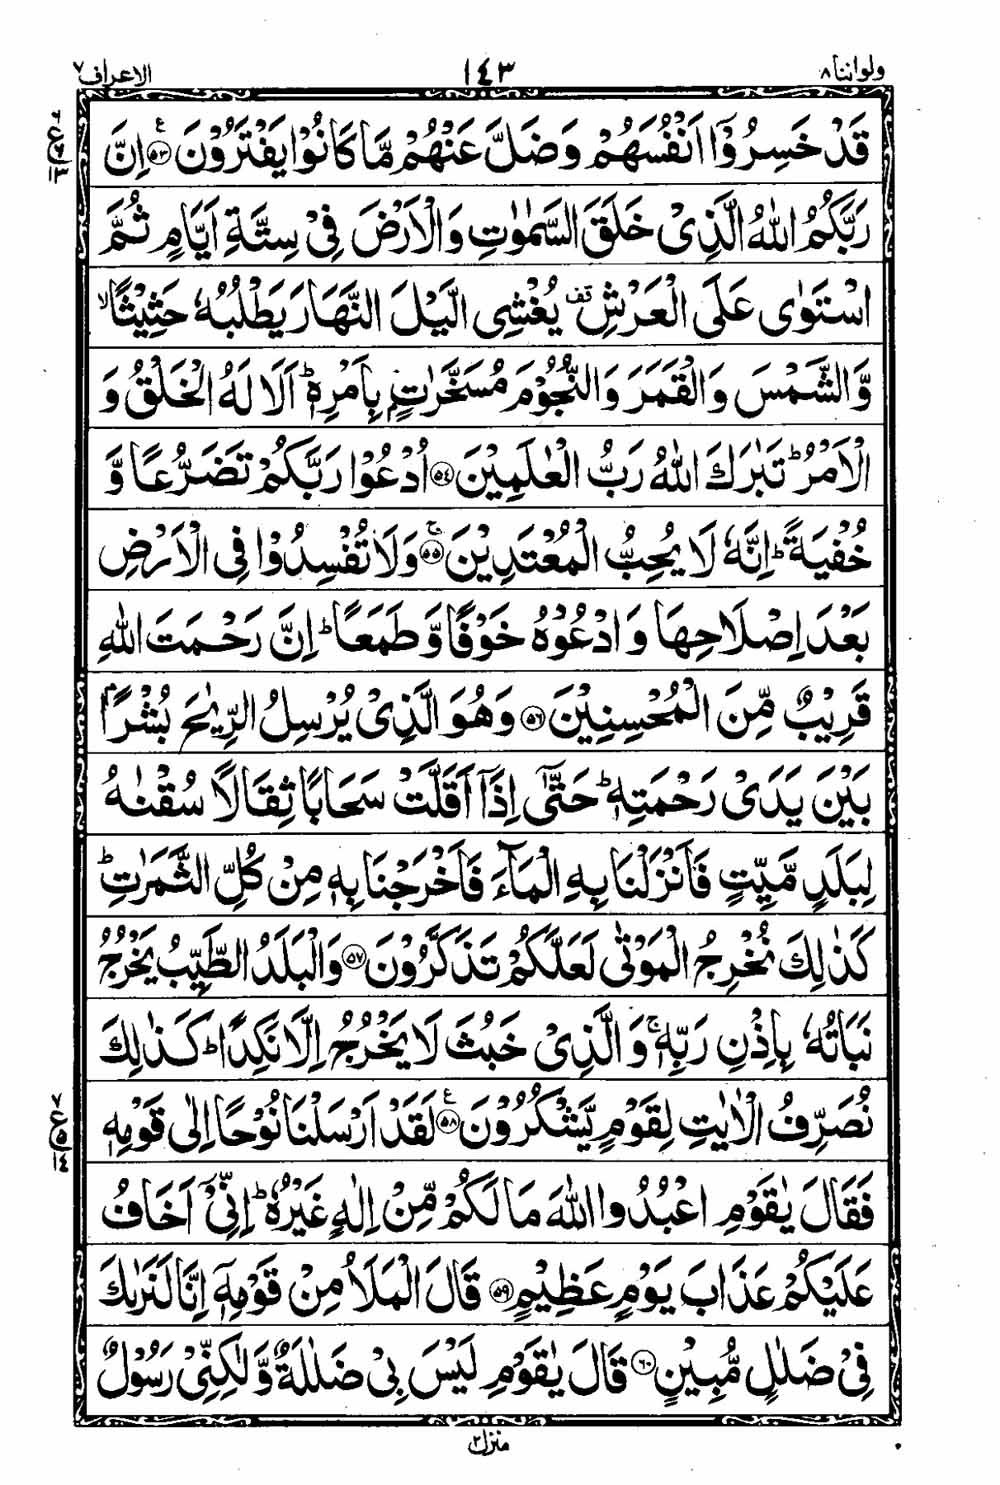 ولواننا ٨ ١٤٣ الاعراف ٧
قَدْ خَسِرُوْۤا اَنْفُسَهُمْ وَضَلَّ عَنْهُمْ مَّا كَانُوْا يَفْتَرُوْنَ ﴿٥٣﴾ ع اِنَّ
رَبَّكُمُ اللّٰهُ الَّذِیْ خَلَقَ السَّمٰوٰتِ وَالْاَرْضَ فِیْ سِتَّةِ اَیَّامٍ ثُمَّ
اسْتَوٰی عَلَی الْعَرْشِ قف یُغْشِی الَّیْلَ النَّهَارَ یَطْلُبُهٗ حَثِیْثًا ۙ
وَّالشَّمْسَ وَالْقَمَرَ وَالنُّجُوْمَ مُسَخَّرٰتٍۭ بِاَمْرِهٖ ؕ اَلَا لَهُ الْخَلْقُ وَ
الْاَمْرُ ؕ تَبٰرَكَ اللّٰهُ رَبُّ الْعٰلَمِیْنَ ﴿٥٤﴾ اُدْعُوْا رَبَّكُمْ تَضَرُّعًا وَّ
خُفْیَةً ؕ اِنَّهٗ لَا یُحِبُّ الْمُعْتَدِیْنَ ﴿٥٥﴾ ۚ وَلَا تُفْسِدُوْا فِی الْاَرْضِ
بَعْدَ اِصْلَاحِهَا وَادْعُوْهُ خَوْفًا وَّطَمَعًا ؕ اِنَّ رَحْمَتَ اللّٰهِ
قَرِیْبٌ مِّنَ الْمُحْسِنِیْنَ ﴿٥٦﴾ وَهُوَ الَّذِیْ یُرْسِلُ الرِّیٰحَ بُشْرًۢا
بَیْنَ یَدَیْ رَحْمَتِهٖ ؕ حَتّٰۤی اِذَاۤ اَقَلَّتْ سَحَابًا ثِقَالًا سُقْنٰهُ
لِبَلَدٍ مَّیِّتٍ فَاَنْزَلْنَا بِهِ الْمَآءَ فَاَخْرَجْنَا بِهٖ مِنْ كُلِّ الثَّمَرٰتِ ؕ
كَذٰلِكَ نُخْرِجُ الْمَوْتٰی لَعَلَّكُمْ تَذَكَّرُوْنَ ﴿٥٧﴾ وَالْبَلَدُ الطَّیِّبُ یَخْرُجُ
نَبَاتُهٗ بِاِذْنِ رَبِّهٖ ۚ وَالَّذِیْ خَبُثَ لَا یَخْرُجُ اِلَّا نَكِدًا ؕ كَذٰلِكَ
نُصَرِّفُ الْاٰیٰتِ لِقَوْمٍ یَّشْكُرُوْنَ ﴿٥٨﴾ ع لَقَدْ اَرْسَلْنَا نُوْحًا اِلٰی قَوْمِهٖ
فَقَالَ یٰقَوْمِ اعْبُدُوا اللّٰهَ مَا لَكُمْ مِّنْ اِلٰهٍ غَیْرُهٗ ؕ اِنِّیْۤ اَخَافُ
عَلَیْكُمْ عَذَابَ یَوْمٍ عَظِیْمٍ ﴿٥٩﴾ قَالَ الْمَلَاُ مِنْ قَوْمِهٖۤ اِنَّا لَنَرٰىكَ
فِیْ ضَلٰلٍ مُّبِیْنٍ ﴿٦٠﴾ قَالَ یٰقَوْمِ لَیْسَ بِیْ ضَلٰلَةٌ وَّلٰكِنِّیْ رَسُوْلٌ
منزل ٢